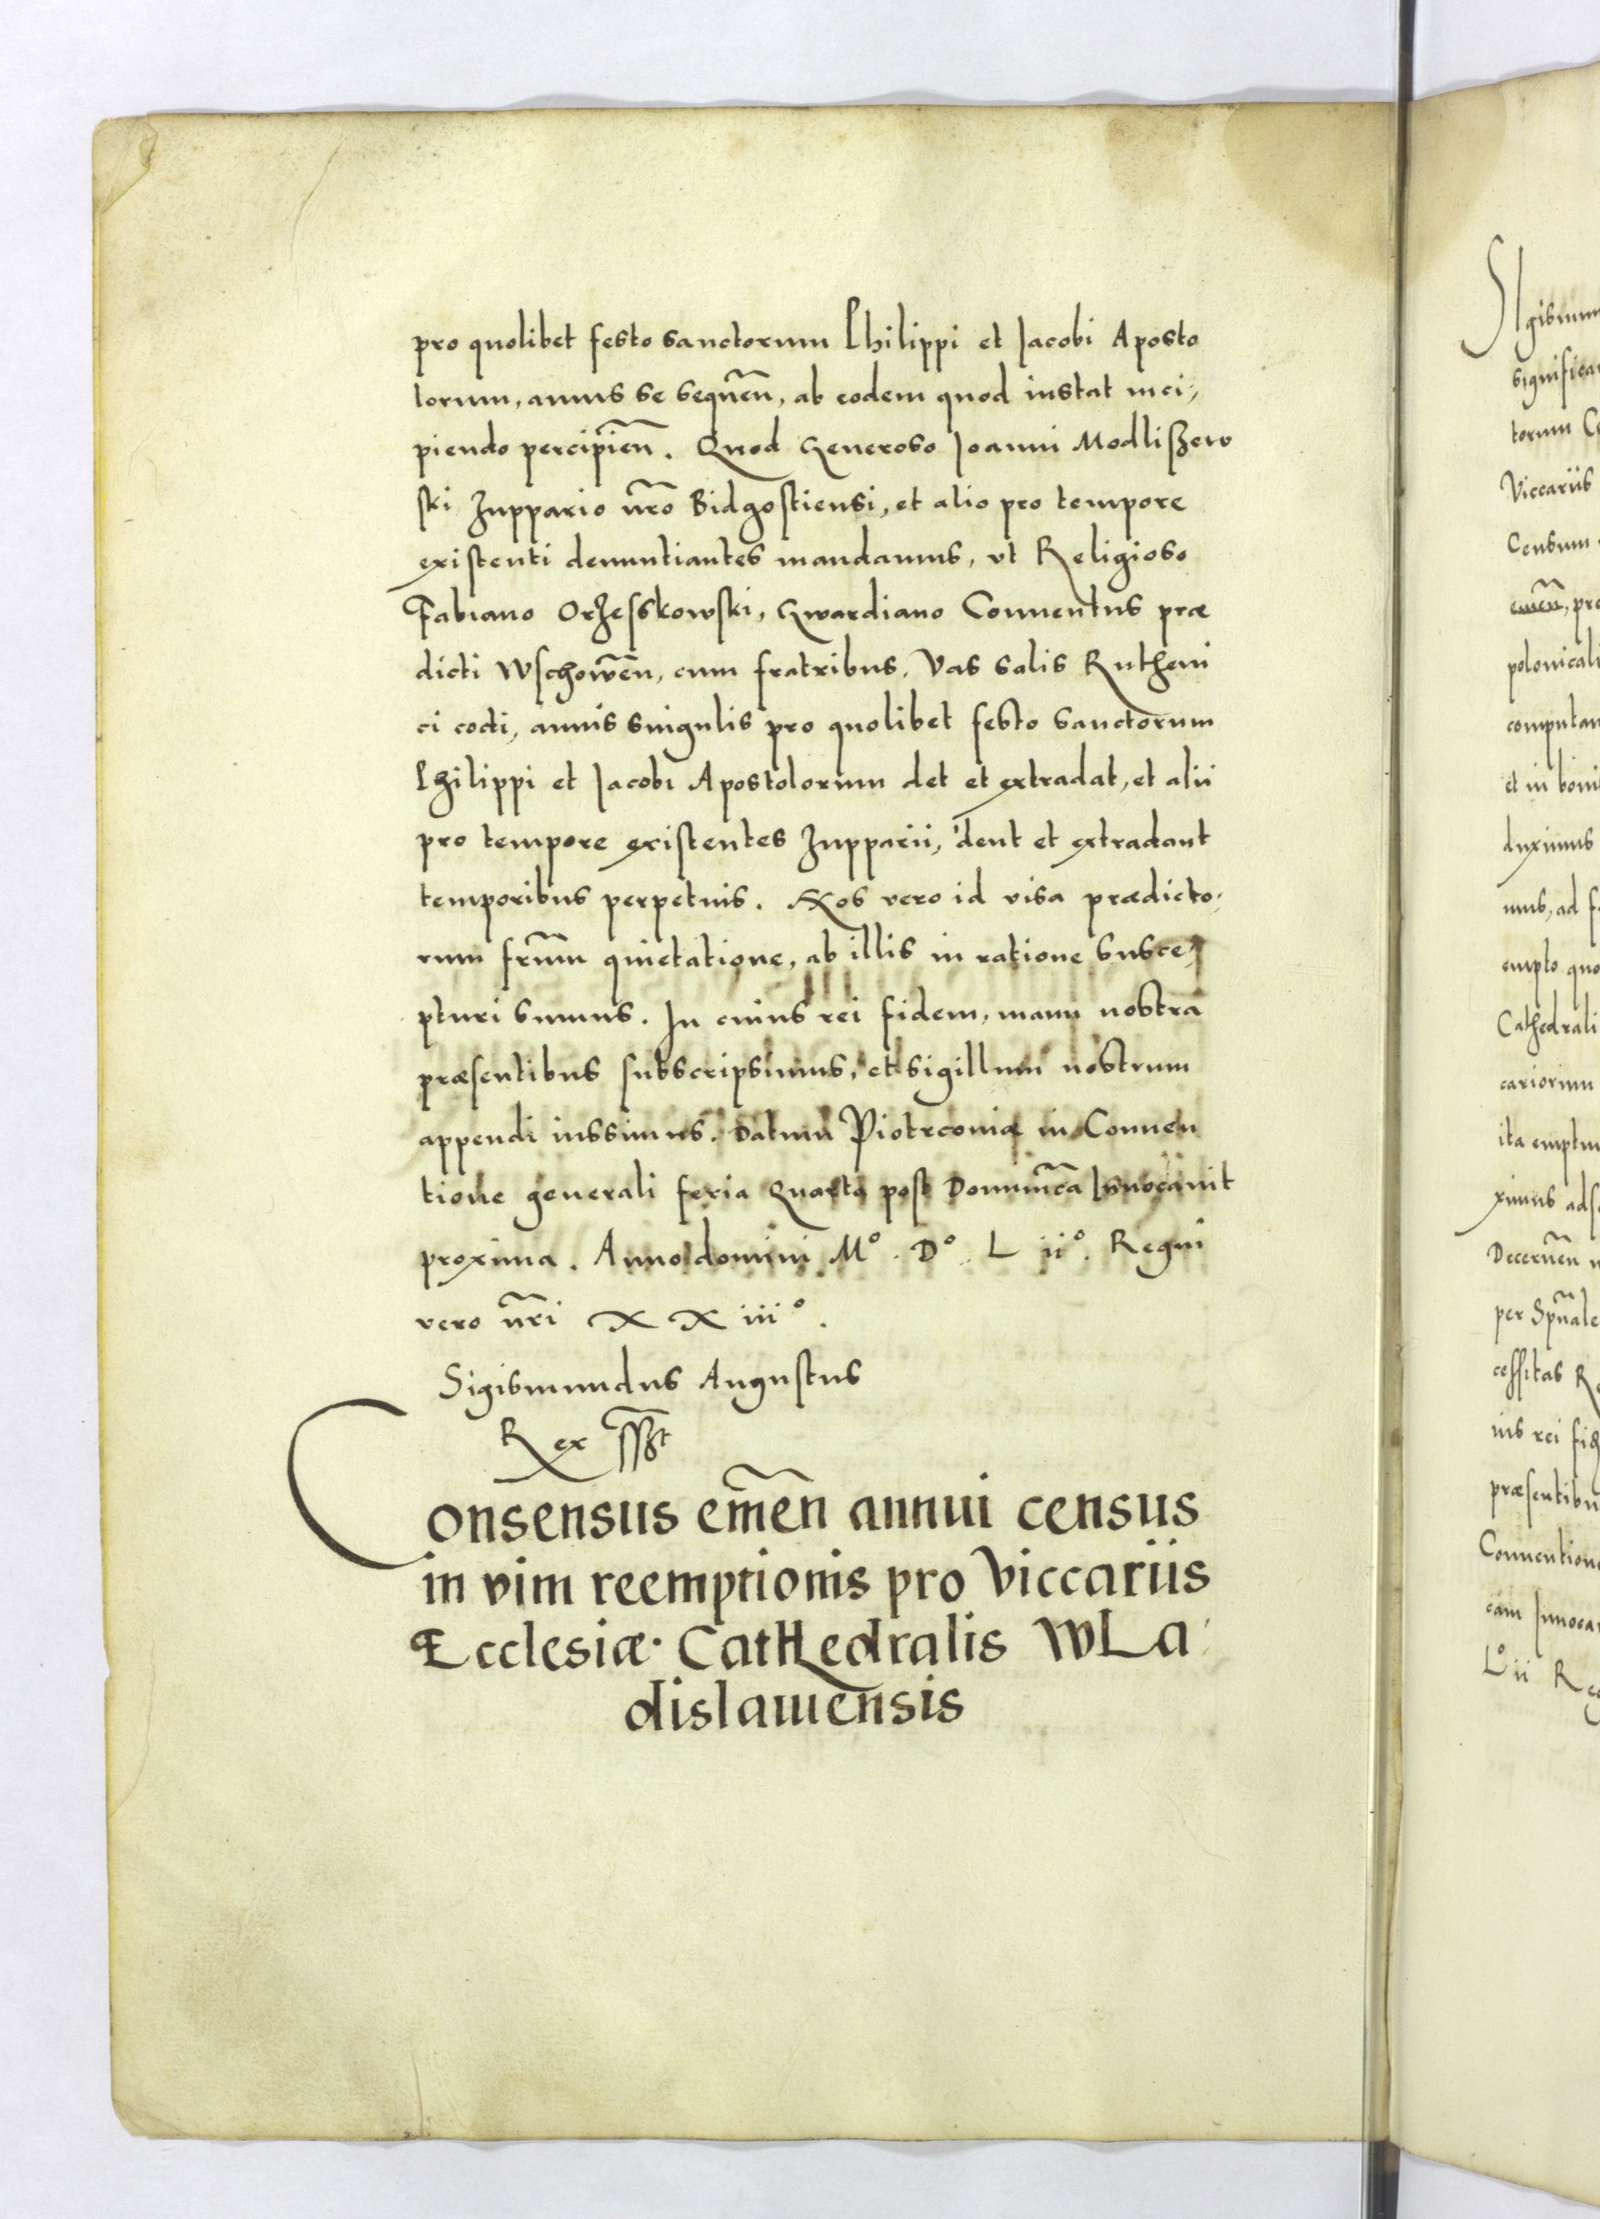 pro quolibet festo sanctorum Philippi et Jacobi Aposto
lorum, annis se sequen̄, ab eodem quod instat inci,
piendo percipien̄. Quod Generoso Joanni Modlißew
ski Zuppario nr̄o Bidgostiensi, et alio pro tempore
existenti denuntiantes mandamus, vt Religioso
Fabiano Orzesskowski, Gwardiano Conuentus præ
dicti Wschowen̄, cum fratribus, Vas salis Rutheni
ci cocti, annis singulis pro quolibet festo sanctorum
Philippi et Jacobi Apostolorum det et extradat, et alii
pro tempore existentes Zupparii, dent et extradant
temporibus perpetuis. Nos vero id visa prædicto,
rum frūm quietatione, ab illis in ratione susce,
pturi sumus. In cuius rei fidem, manu nostra
præsentibus subscripsimus, et sigillum nostrum
appendi iussimus. Datum Piotrcouiæ in Conuen
tione generali feria Quarta post Dominicā Inuocauit
proxima. Anno domini Mº. Dº. L iiº. Regni
vero nr̄i XX iiiº.
Sigismundus Augustus
Rex sszt
Consensus emen̄ annui census
in vim reemptionis pro Viccariis
Ecclesiæ Cathedralis WLa
dislauiensis
SIgismun
significa
torum
Viccariis
Censum
emen̄, pro
polonicali
computan
et in boni
duximus
mus, ad
empto quo
Cathedrali
cariorum
ita emptu
ximus ads
Decernen̄
per Spūale
cessitas
ius rei fid
præsentibu
Conuentione
cam Inuoca
Lº ii Reg